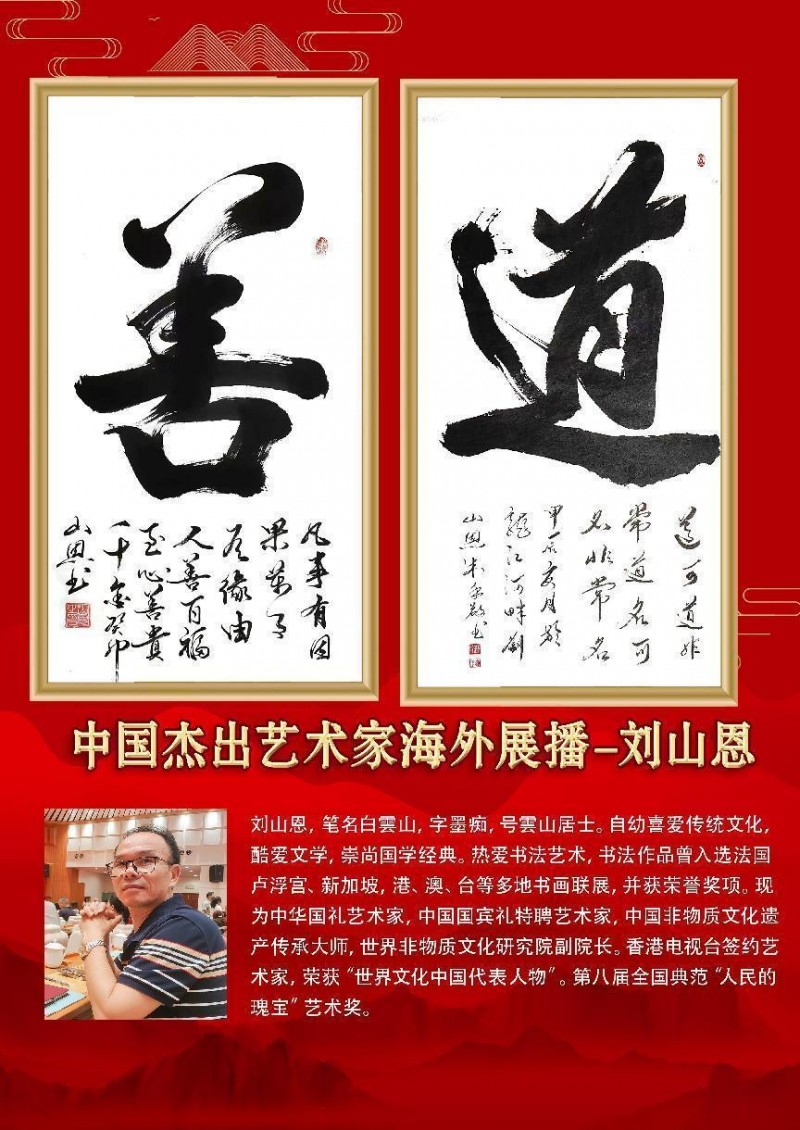 善
凡事有因
果萬事
有緣由
人善百福
至心善貴
千金癸卯
山恩书
道
道可道非
常道名可
名非常名
甲辰
龍江河畔
山恩
书
中国杰出艺术家海外展播-刘山恩
刘山恩, 笔名白雲山, 字墨痴, 号雲山居士。自幼喜爱传统文化,
酷爱文学, 崇尚国学经典。热爱书法艺术, 书法作品曾入选法国
卢浮宫、新加坡, 港、澳、台等多地书画联展, 并获荣誉奖项。现
为中华国礼艺术家, 中国国宾礼特聘艺术家, 中国非物质文化遗
产传承大师, 世界非物质文化研究院副院长。香港电视台签约艺
术家, 荣获“世界文化中国代表人物”。第八届全国典范“人民的
瑰宝”艺术奖。